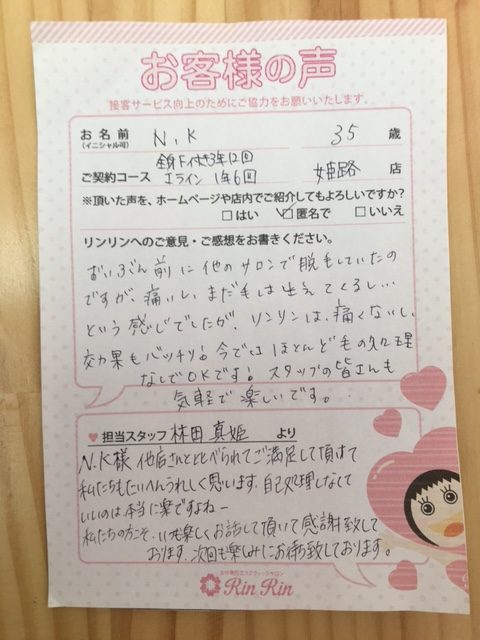 お客様の声
接客サービス向上のためにご協力をお願いいたします。
お名前 N.K 35 歳
(イニシャル可)
全身 3年12回
ご契約コース Iライン 1年6回 姫路 店
※頂いた声を、ホームページや店内でご紹介してもよろしいですか?
□はい ☑匿名で □いいえ
リンリンへのご意見・ご感想をお書きください。
ずいぶん前に他のサロンで脱毛していたの
ですが、痛いし、まだ毛は生えてくるし…
という感じでしたが、リンリンは、痛くないし、
効果もバッチリ!今ではほとんど毛の処理
なしでOKです!スタッフの皆さんも
気軽で楽しいです。
♥担当スタッフ 林田 真姫 より
N.K様 他店さんとくらべられてご満足して頂けて
私たちもたいへんうれしく思います。自己処理しなくて
いいのは本当に楽ですねー
私たちの方こそ、いつも楽しくお話して頂いて感謝致して
おります。次回も楽しみにお待ち致しております。
Rin Rin